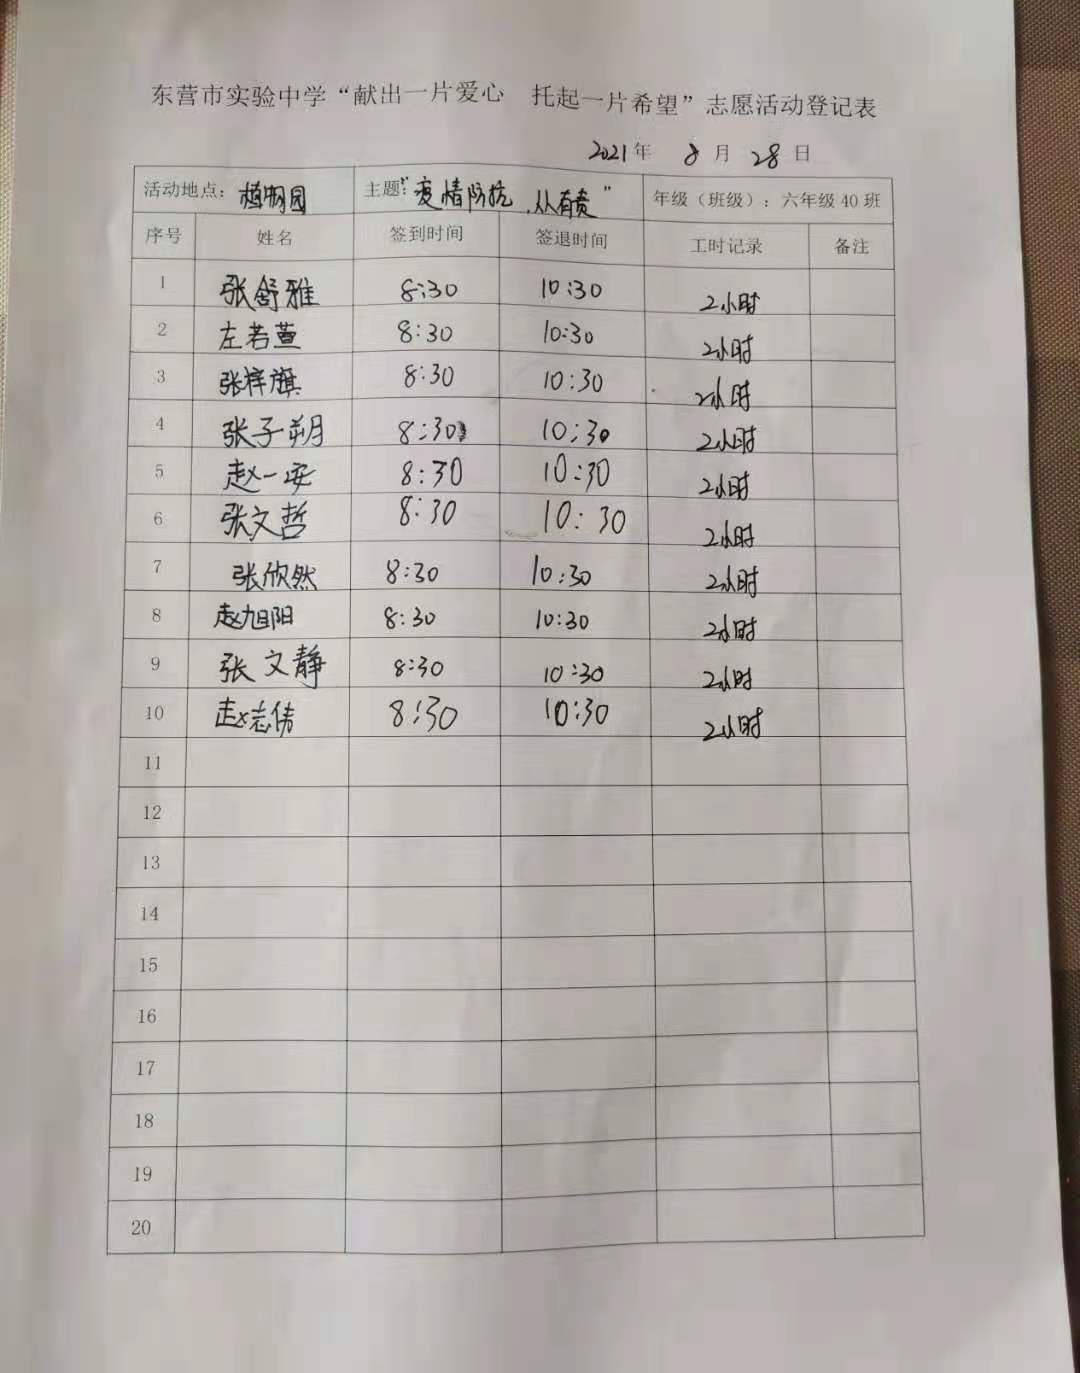 东营市实验中学“献出一片爱心 托起一片希望”志愿活动登记表
2021年 8月 28日
活动地点：植物园 主题：“疫情防抗，从有责” 年级（班级）：六年级40班
序号 姓名 签到时间 签退时间 工时记录 备注
1 张舒雅 8:30 10:30 2小时
2 左若萱 8:30 10:30 2小时
3 张梓旗 8:30 10:30 2小时
4 张子朔 8:30 10:30 2小时
5 赵一安 8:30 10:30 2小时
6 张文哲 8:30 10:30 2小时
7 张欣然 8:30 10:30 2小时
8 赵旭阳 8:30 10:30 2小时
9 张文静 8:30 10:30 2小时
10 赵志伟 8:30 10:30 2小时
11
12
13
14
15
16
17
18
19
20